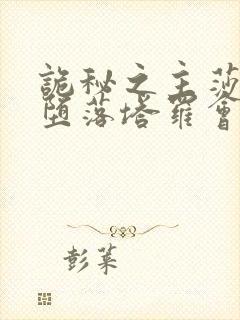 詭秘之主莎
堕落塔羅會
彭莱